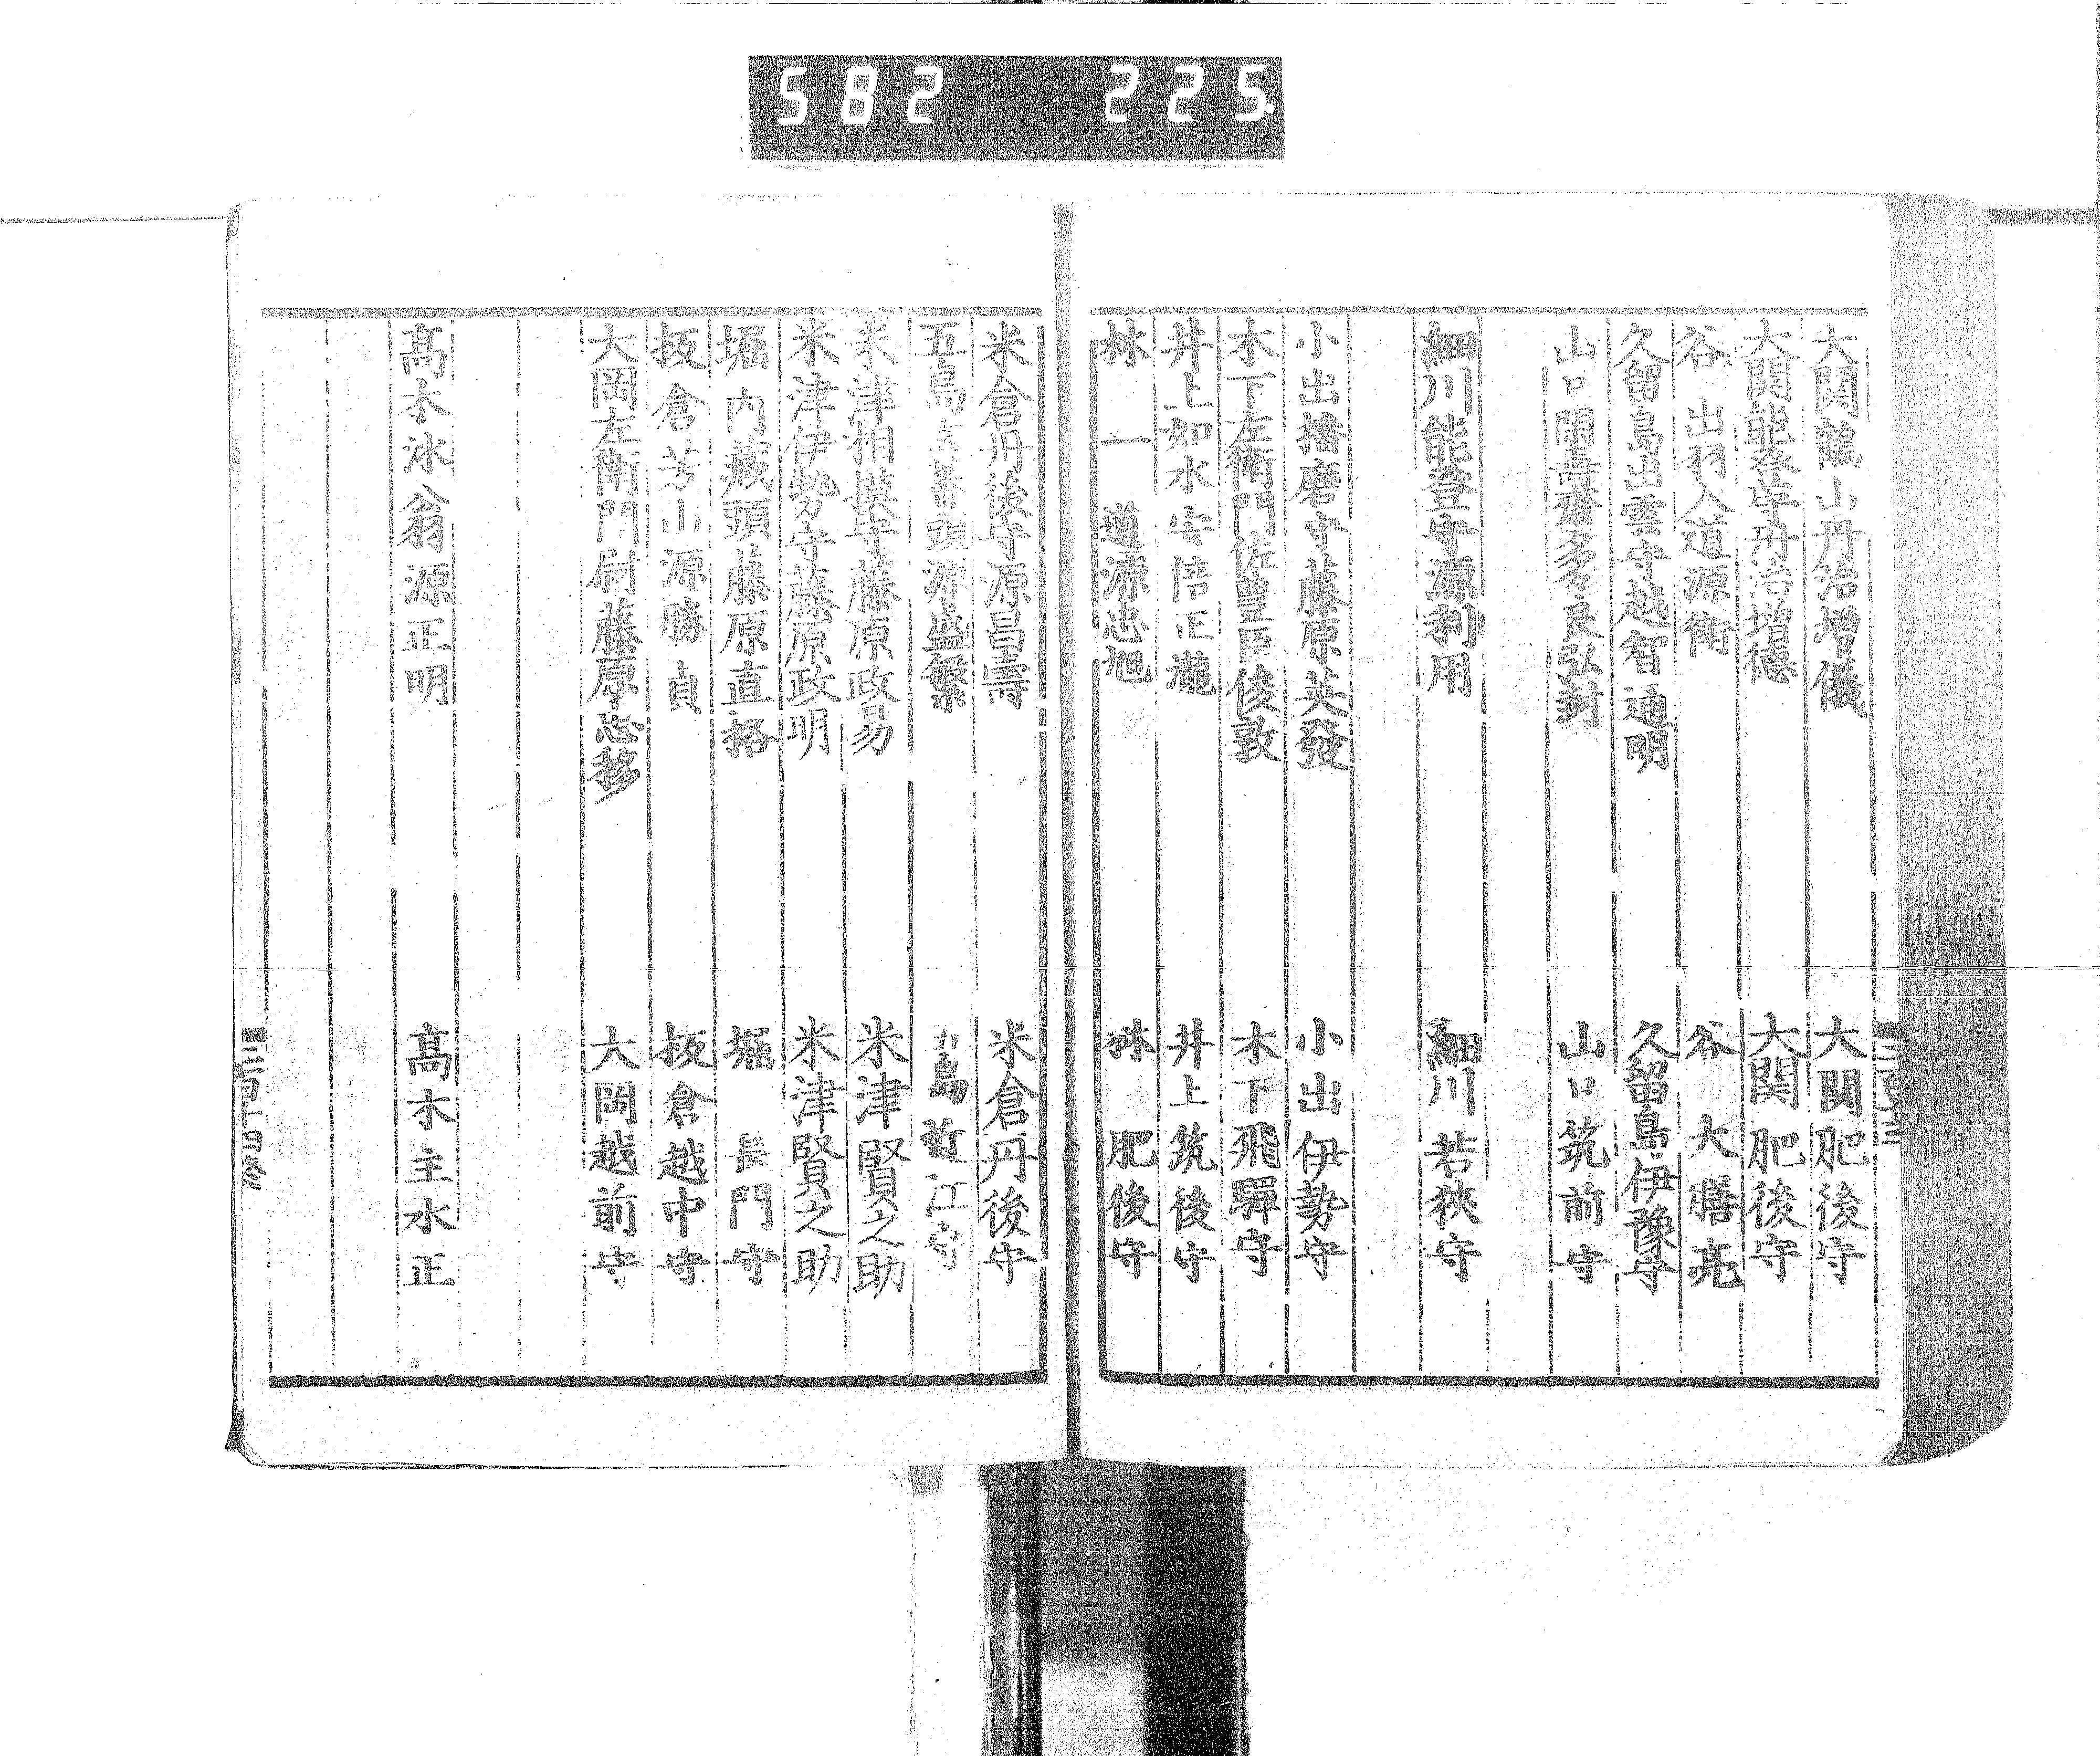 582 225
大関鶴山丹治増儀 大関肥後守
大関能登守丹治増徳 大関肥後守
谷出羽入道源衛 谷大膳亮
久留島出雲守越智通明 久留島伊豫守
山口閑斎多々良弘封 山口筑前守
細川能登守源利用 細川若狹守
小出播磨守藤原英發 小出伊勢守
木下左衛門佐豊臣俊敦 木下飛驒守
井上如水安倍正瀧 井上筑後守
林一道源忠旭 林肥後守
米倉丹後守源昌壽 米倉丹後守
五島 頭源盛繁 五島近江守
米津相摸守藤原政易 米津賢之助
米津伊勢守藤原政明 米津賢之助
堀内藏頭藤原直格 堀長門守
板倉芳山源勝貞 板倉越中守
大岡左衛門尉藤原忠移 大岡越前守
髙木氷翁源正明 髙木主水正